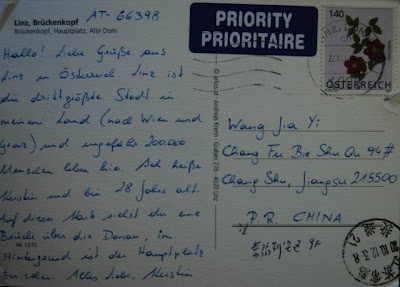 AT-66398
Linz, Brückenkopf
Brückenkopf, Hauptplatz, Alte Dom
Hallo! Liebe Grüße aus
Linz in Österreich. Linz ist
die drittgrößte Stadt in
meinem Land (nach Wien und
Graz) und ungefähr 200.000
Menschen leben hier. Ich heiße
Kerstin und bin 28 Jahre alt.
Auf dieser Karte siehst du eine
Brücke über die Donau, im
Hintergrund ist der Hauptplatz
zu sehen. Alles Liebe, Kerstin
AK 1215
PRIORITY
PRIORITAIRE
140
ÖSTERREICH
Wang Jia Yi
Chang Fu Bie Shu Qu 94#
Chang Shu, Jiangsu 215500
P.R. CHINA